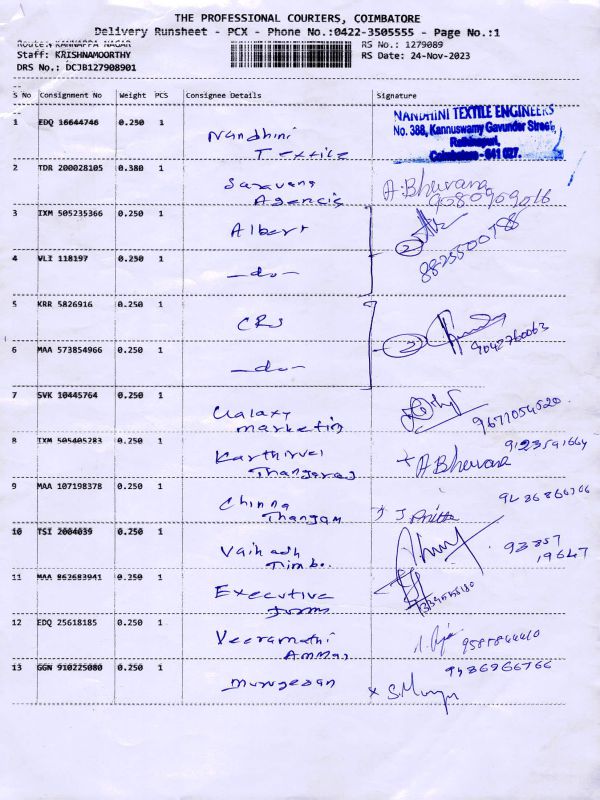 THE PROFESSIONAL COURIERS, COIMBATORE
Delivery Runsheet - PCX - Phone No.:0422-3505555 - Page No.:1
Route: KANNAPPA NAGAR
RS No.: 1279089
Staff: KRISHNAMOORTHY
RS Date: 24-Nov-2023
DRS No.: DCJB127908901
S No Consignment No Weight PCS Consignee Details Signature
NANDHINI TEXTILE ENGINEERS
No. 388, Kannuswamy Gavunder Street,
Rathinapuri,
Coimbatore - 641 027.
1 EDQ 16644746 0.250 1 Nandhini
Textile
2 TDR 200028105 0.380 1 Saravana
Agencis
A.Bhuvana
9080909016
3 IXM 505235366 0.250 1 Albert
2
4 VLI 118197 0.250 1 -do-
5 KRR 5826916 0.250 1 CRS
2 9042760063
6 MAA 573854966 0.250 1 -do-
7 SVK 10445764 0.250 1 Galaxy
marketing
9677054520
8 IXM 505405283 0.250 1 Karthirvel
Thangaraj
A Bhuvana
9 MAA 107198378 0.250 1 Chinna
Thangam
J
10 TSI 2004039 0.250 1
93857
19647
11 MAA 862683941 0.250 1 Executive
12 EDQ 25618185 0.250 1
13 GGN 910225080 0.250 1 murugesan